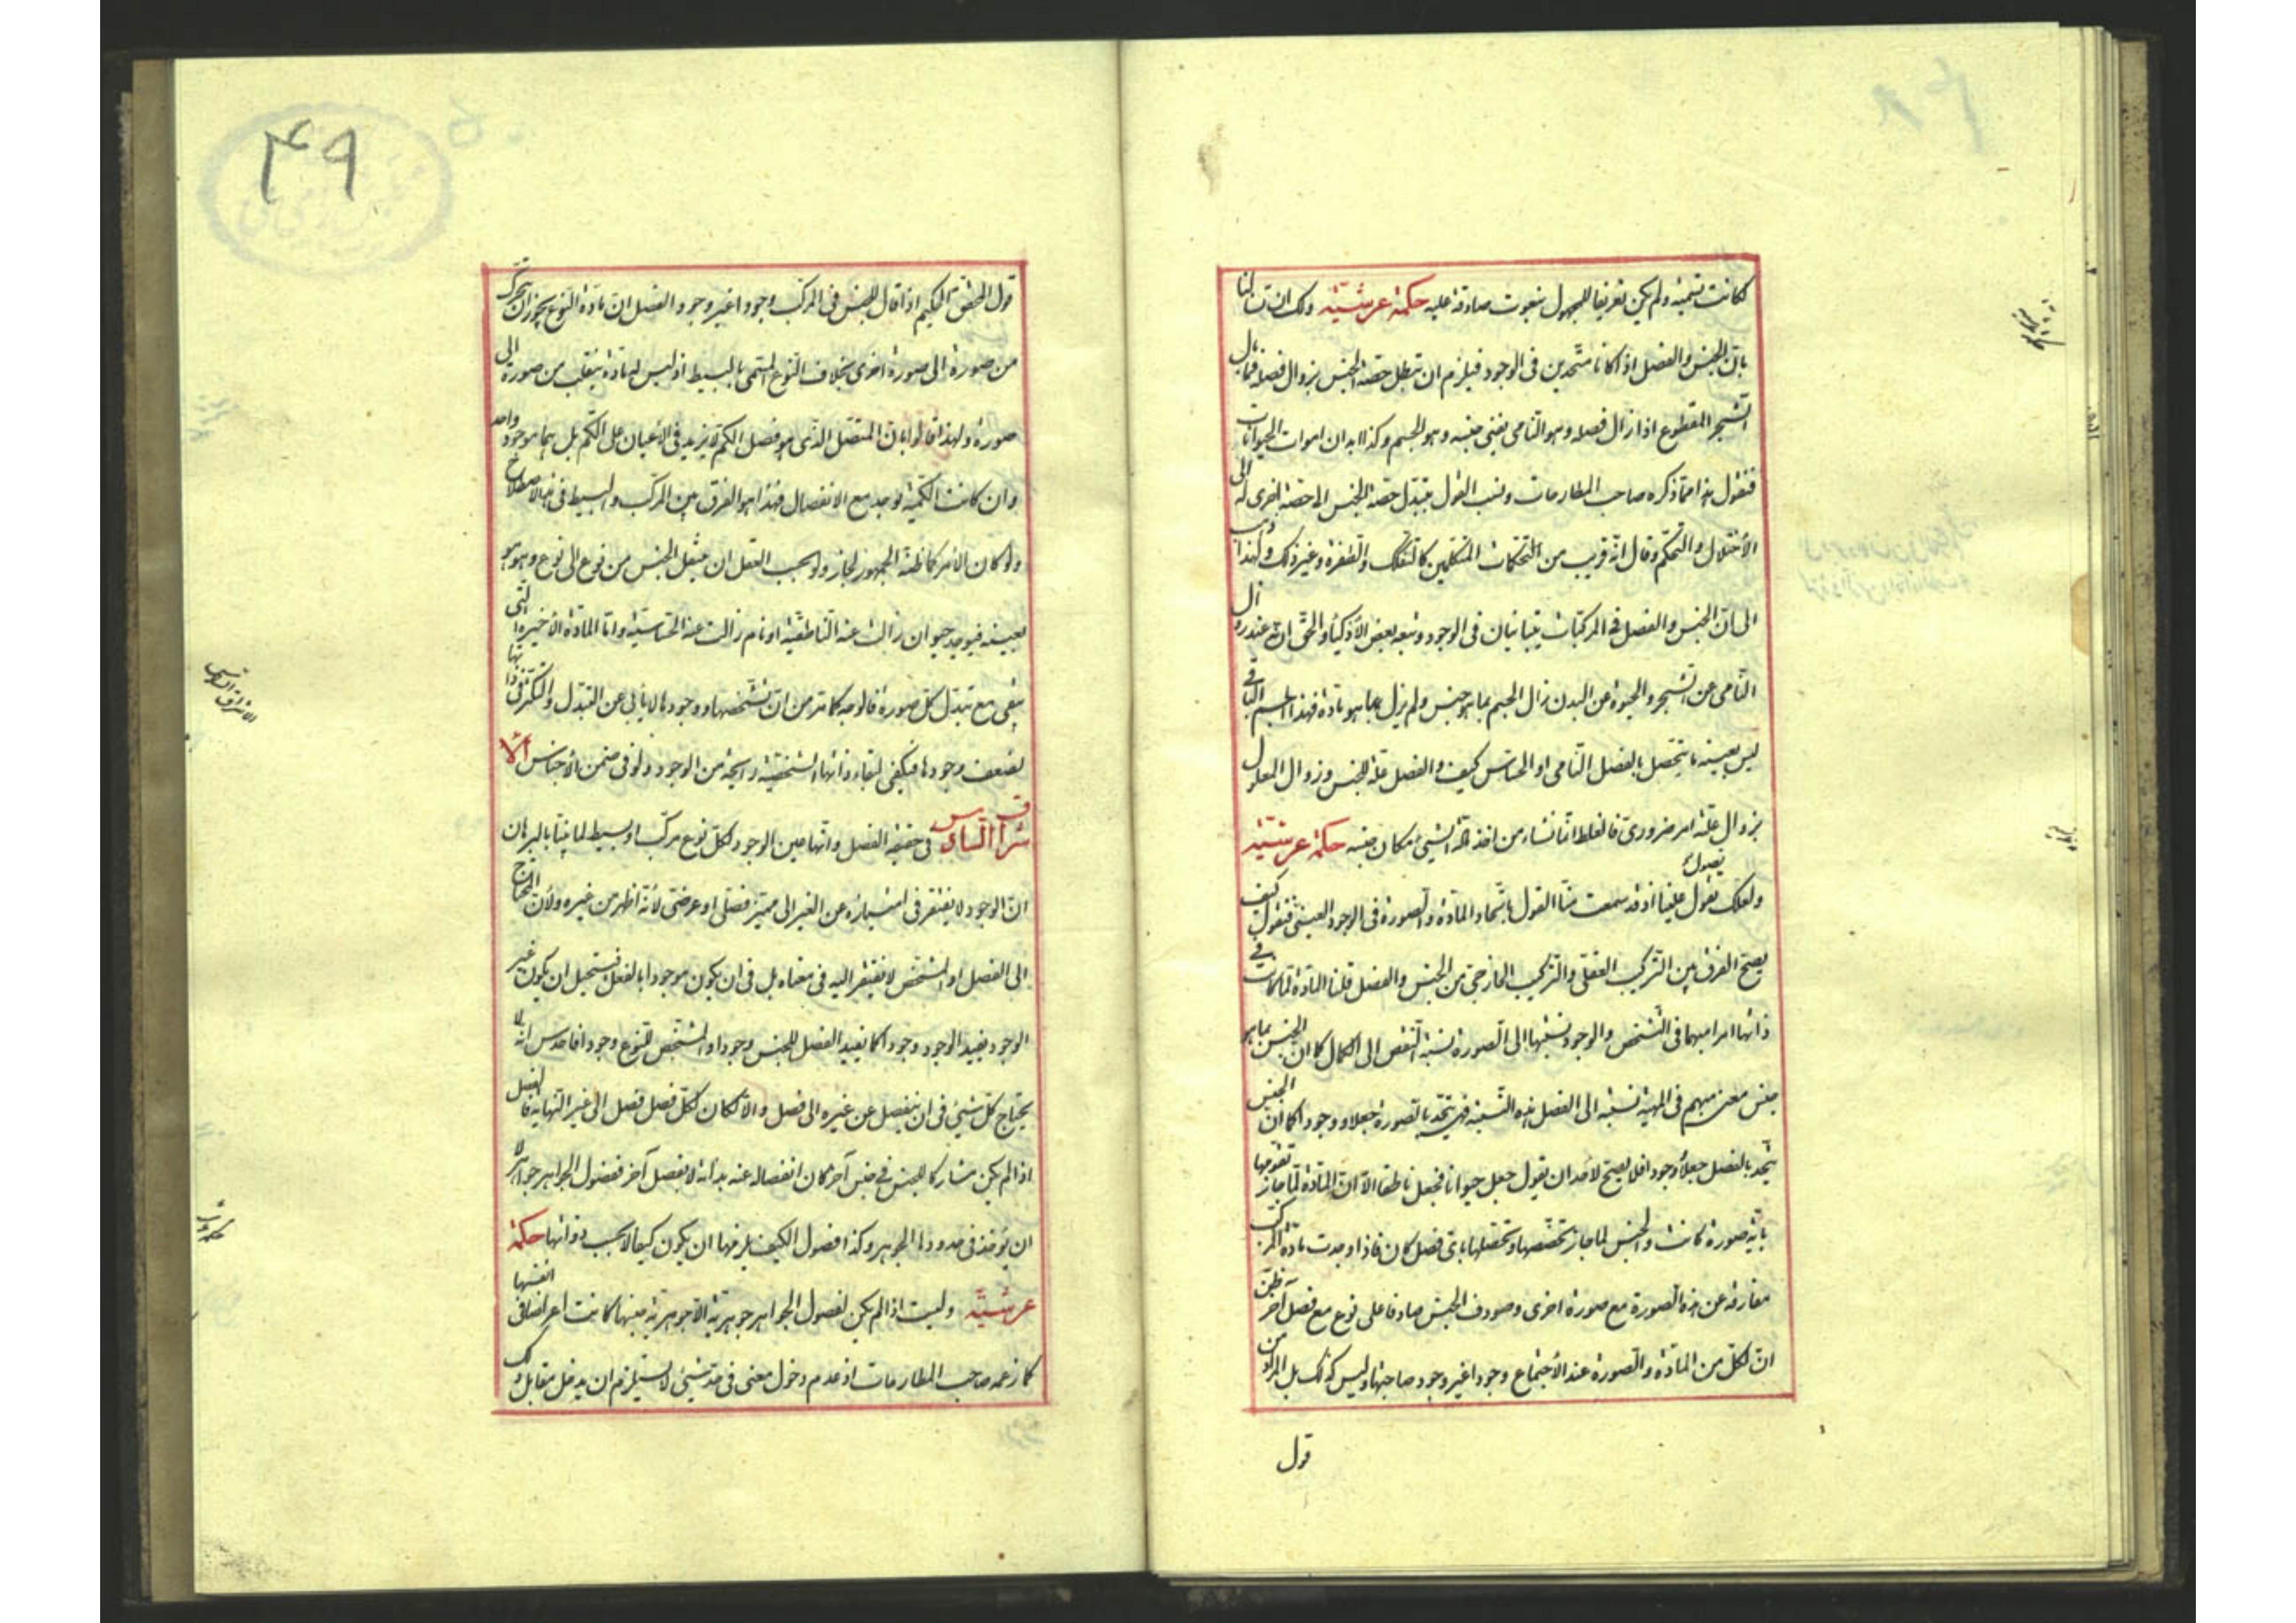 لكانت تسمية ولم يكن تعريفا للمجهول بنعوت صادقة عليه حكمة عرشية ولك ان تسألنا
بان الجنس والفصل اذا كانا متحدين فى الوجود فيلزم ان تبطل حصة الجنس بزوال فصله فما بال
الشجر المقطوع اذا زال فصله وهو النامى يبقى جنسه وهو الجسم وكذا ابدان اموات الحيوانات
فنقول هذا مما ذكره صاحب المطارحات ونسب القول بتبدل حصة الجنس الى حصة اخرى له الى
الأختلال والتحكم وقال انه قريب من تحكمات المتكلمين كالتفكك والطفرة وغير ذلك ولهذا ذهب
الى ان الجنس والفصل فى المركبات يتباينان فى الوجود وتبعه بعض الأذكياء والحق ان عند زوال
النامى عن الشجر والحيوة عن البدن زال الجسم بما هو جنس ولم يزل بما هو مادة فهذا الجسم الباقى
ليس بعينه ما يتحصل بالفصل النامى او الحساس كيف والفصل علة للجنس وزوال المعلول
بزوال علته امر ضرورى فالغلط انما نشاء من اخذ مادة الشيئ مكان جنسه حكمة عرشية
ولعلك تقول علينا اذ قد سمعت منا القول باتحاد المادة والصورة فى الوجود العينى فتقول كيف
يصح الفرق بين التركيب العقلى والتركيب الخارجى من الجنس والفصل قلنا المادة لما كانت فى
ذاتها امرا مبهما فى التشخص والوجود نسبتها الى الصورة نسبة النقص الى الكمال كما ان الجنس بما هو
جنس معنى مبهم فى المهية نسبته الى الفصل هذه النسبة فهى يتحد بالصورة جعلا ووجودا كما ان الجنس
يتحد بالفصل جعلا ووجودا فلا يصح لاحد ان يقول جعل حيوانا فجعل ناطقا الا ان المادة لما جاز تقومها
باية صورة كانت والجنس لما جاز تخصصها وتحصلها باى فصل كان فاذا وجدت مادة المركب
مفارقة عن هذه الصورة مع صورة اخرى وصودف الجنس صادقا على نوع مع فصل آخر ظن
ان لكل من المادة والصورة عند الأجتماع وجودا غير وجود صاحبتها وليس كذلك بل المراد من
قول
٤٩
قول المحقق الحكيم اذا قال للجنس فى المركب وجودا غير وجود الفصل ان مادة النوع يجوز ان تتحرك
من صورة الى صورة اخرى بخلاف النوع المسمى بالبسيط اذ ليس له مادة ينقلب من صورة الى
صورة ولهذا قالوا بان المتصل الذى هو فصل الكم لا يزيد فى الأعيان على الكم بل هما موجود واحد
وان كانت الكمية توجد مع الانفصال فهذا هو الفرق بين المركب والبسيط فى هذا الاصطلاح
ولو كان الأمر كما ظنه الجمهور لجاز ولو بحسب العقل ان ينتقل الجنس من نوع الى نوع وهو هو
بعينه فيوجد حيوان زالت عنه الناطقية او نام زالت عنه الحساسية واما المادة الأخيرة التى
يبقى مع تبدل كل صورة فالوجه كما مر من ان تشخصها ووجودها لا يأبى عن التبدل والتكثر فى ذاتها
لضعف وجودها فيكفى لبقاء ذاتها الشخصية رايحة من الوجود ولو فى ضمن الأجناس الا
شراق السادس فى حقيقة الفصل وانها عين الوجود لكل نوع مركب او بسيط لما بينا بالبرهان
ان الوجود لا يفتقر فى امتيازه عن الغير الى مميز فصلى او عرضى لأنه اظهر من غيره ولأن المحتاج
الى الفصل او المشخص لا يفتقر اليه فى معناه بل فى ان يكون موجودا بالفعل فيستحيل ان يكون غير
الوجود يفيد الوجود وجودا كما يفيد الفصل للجنس وجودا والمشخص للنوع وجودا فاحدس انه لا
يحتاج كل شيئ فى ان ينفصل عن غيره الى فصل والا لكان لكل فصل فصل الى غير النهاية فالفصل
اذا لم يكن مشاركا للجنس فى جنس آخر كان انفصاله عنه بذاته لا بفصل آخر ففصول الجواهر جواهر لا
ان يؤخذ فى حدودها الجوهر وكذا فصول الكيف يلزمها ان يكون كيفا لا بحسب ذواتها حكمة
عرشية وليست اذا لم يكن لفصول الجواهر جوهرية الا جوهرية جنسها كانت اعراضا فى انفسها
كما زعمه صاحب المطارحات اذ عدم دخول معنى فى حد شيئ لا يستلزم ان يدخل مقابل ذلك